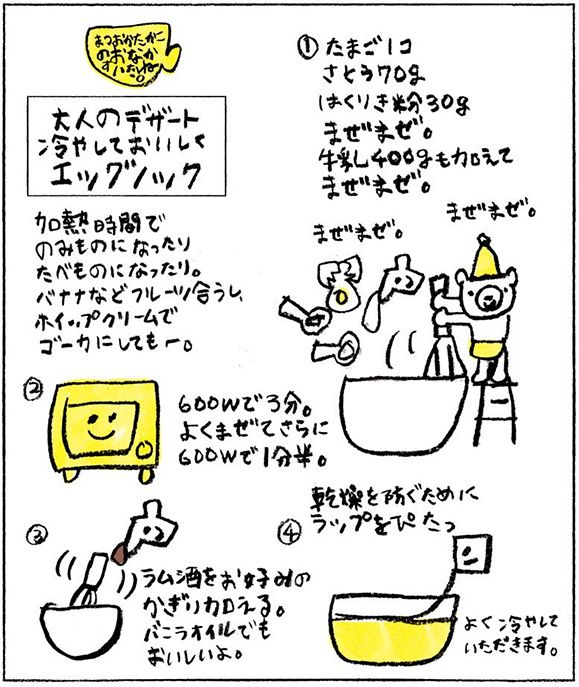 まつおかたかこ
のおなか
すいたね。
大人のデザート
冷やしておいしく
エッグノック
加熱時間で
のみものになったり
たべものになったり。
バナナなどフルーツ合うし、
ホイップクリームで
ゴーカにしてもー。
① たまご1コ
さとう70g
はくりき粉30g
まぜまぜ。
牛乳400gも加えて
まぜまぜ。
まぜまぜ。
まぜまぜ。
②
600Wで3分。
よくまぜてさらに
600Wで1分半。
③
ラム酒をお好みの
かぎり加える。
バニラオイルでも
おいしいよ。
④
乾燥を防ぐために
ラップをぴたっ
よく冷やして
いただきます。